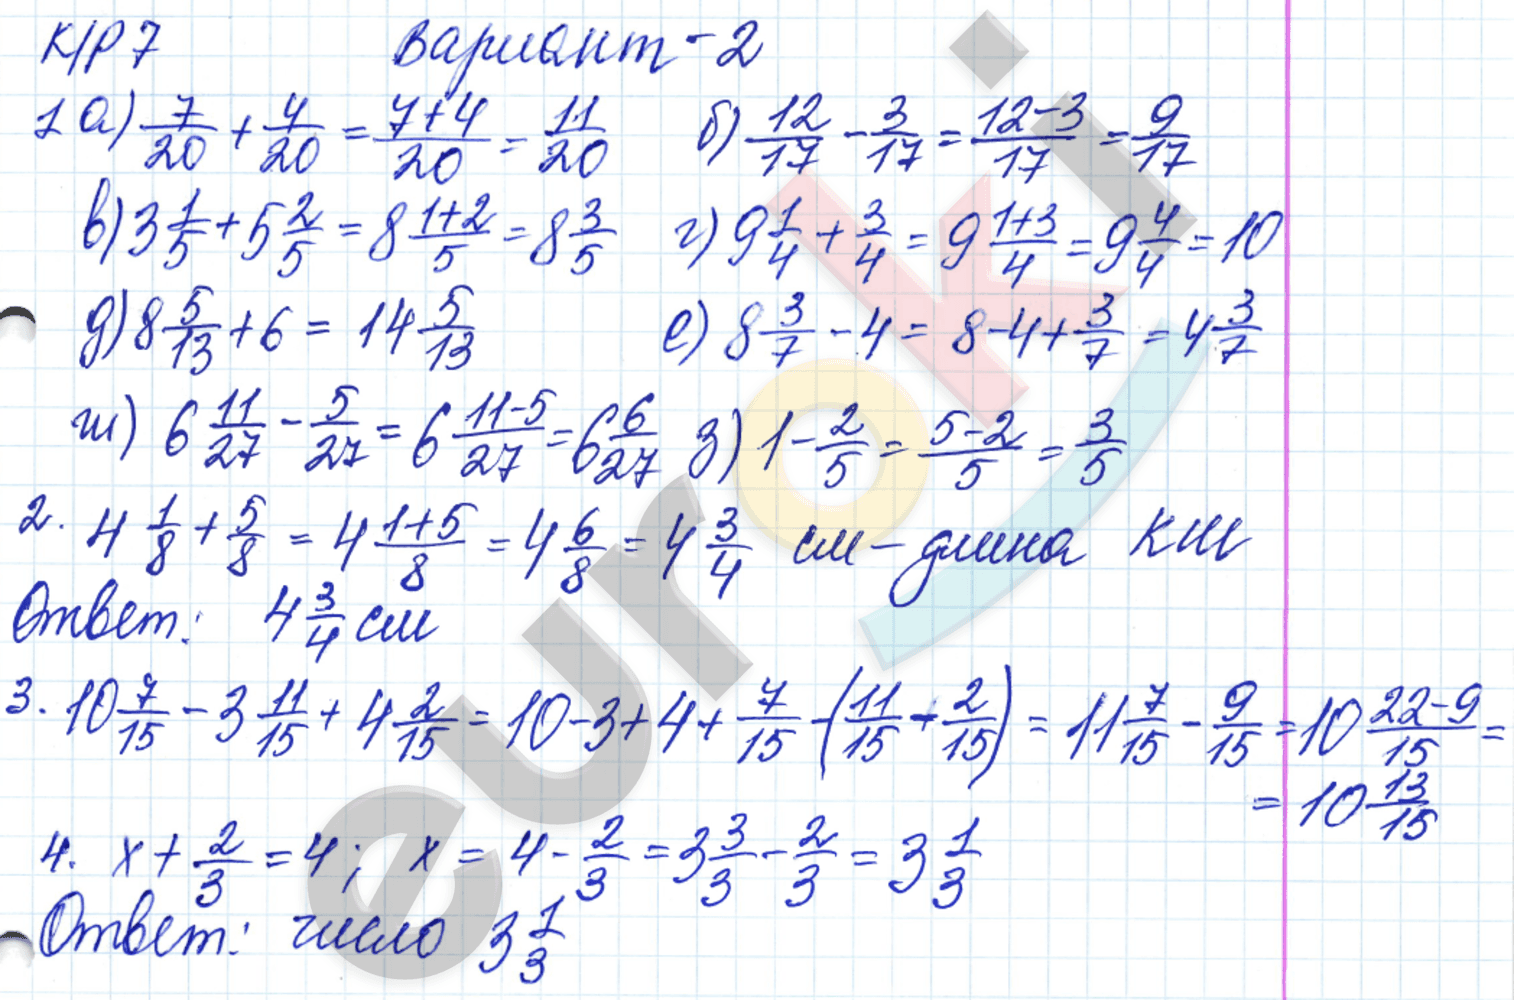 К/Р 7 Вариант-2
1 а) 7/20 + 4/20 = 7+4/20 = 11/20 б) 12/17 - 3/17 = 12-3/17 = 9/17
в) 3 1/5 + 5 2/5 = 8 1+2/5 = 8 3/5 г) 9 1/4 + 3/4 = 9 1+3/4 = 9 4/4 = 10
д) 8 5/13 + 6 = 14 5/13 е) 8 3/7 - 4 = 8-4+3/7 = 4 3/7
ж) 6 11/27 - 5/27 = 6 11-5/27 = 6 6/27 з) 1 - 2/5 = 5-2/5 = 3/5
2. 4 1/8 + 5/8 = 4 1+5/8 = 4 6/8 = 4 3/4 см - длина КМ
Ответ: 4 3/4 см
3. 10 7/15 - 3 11/15 + 4 2/15 = 10-3+4+7/15 - (11/15 - 2/15) = 11 7/15 - 9/15 = 10 22-9/15 =
= 10 13/15
4. х + 2/3 = 4; х = 4 - 2/3 = 3 3/3 - 2/3 = 3 1/3
Ответ: число 3 1/3
euroki